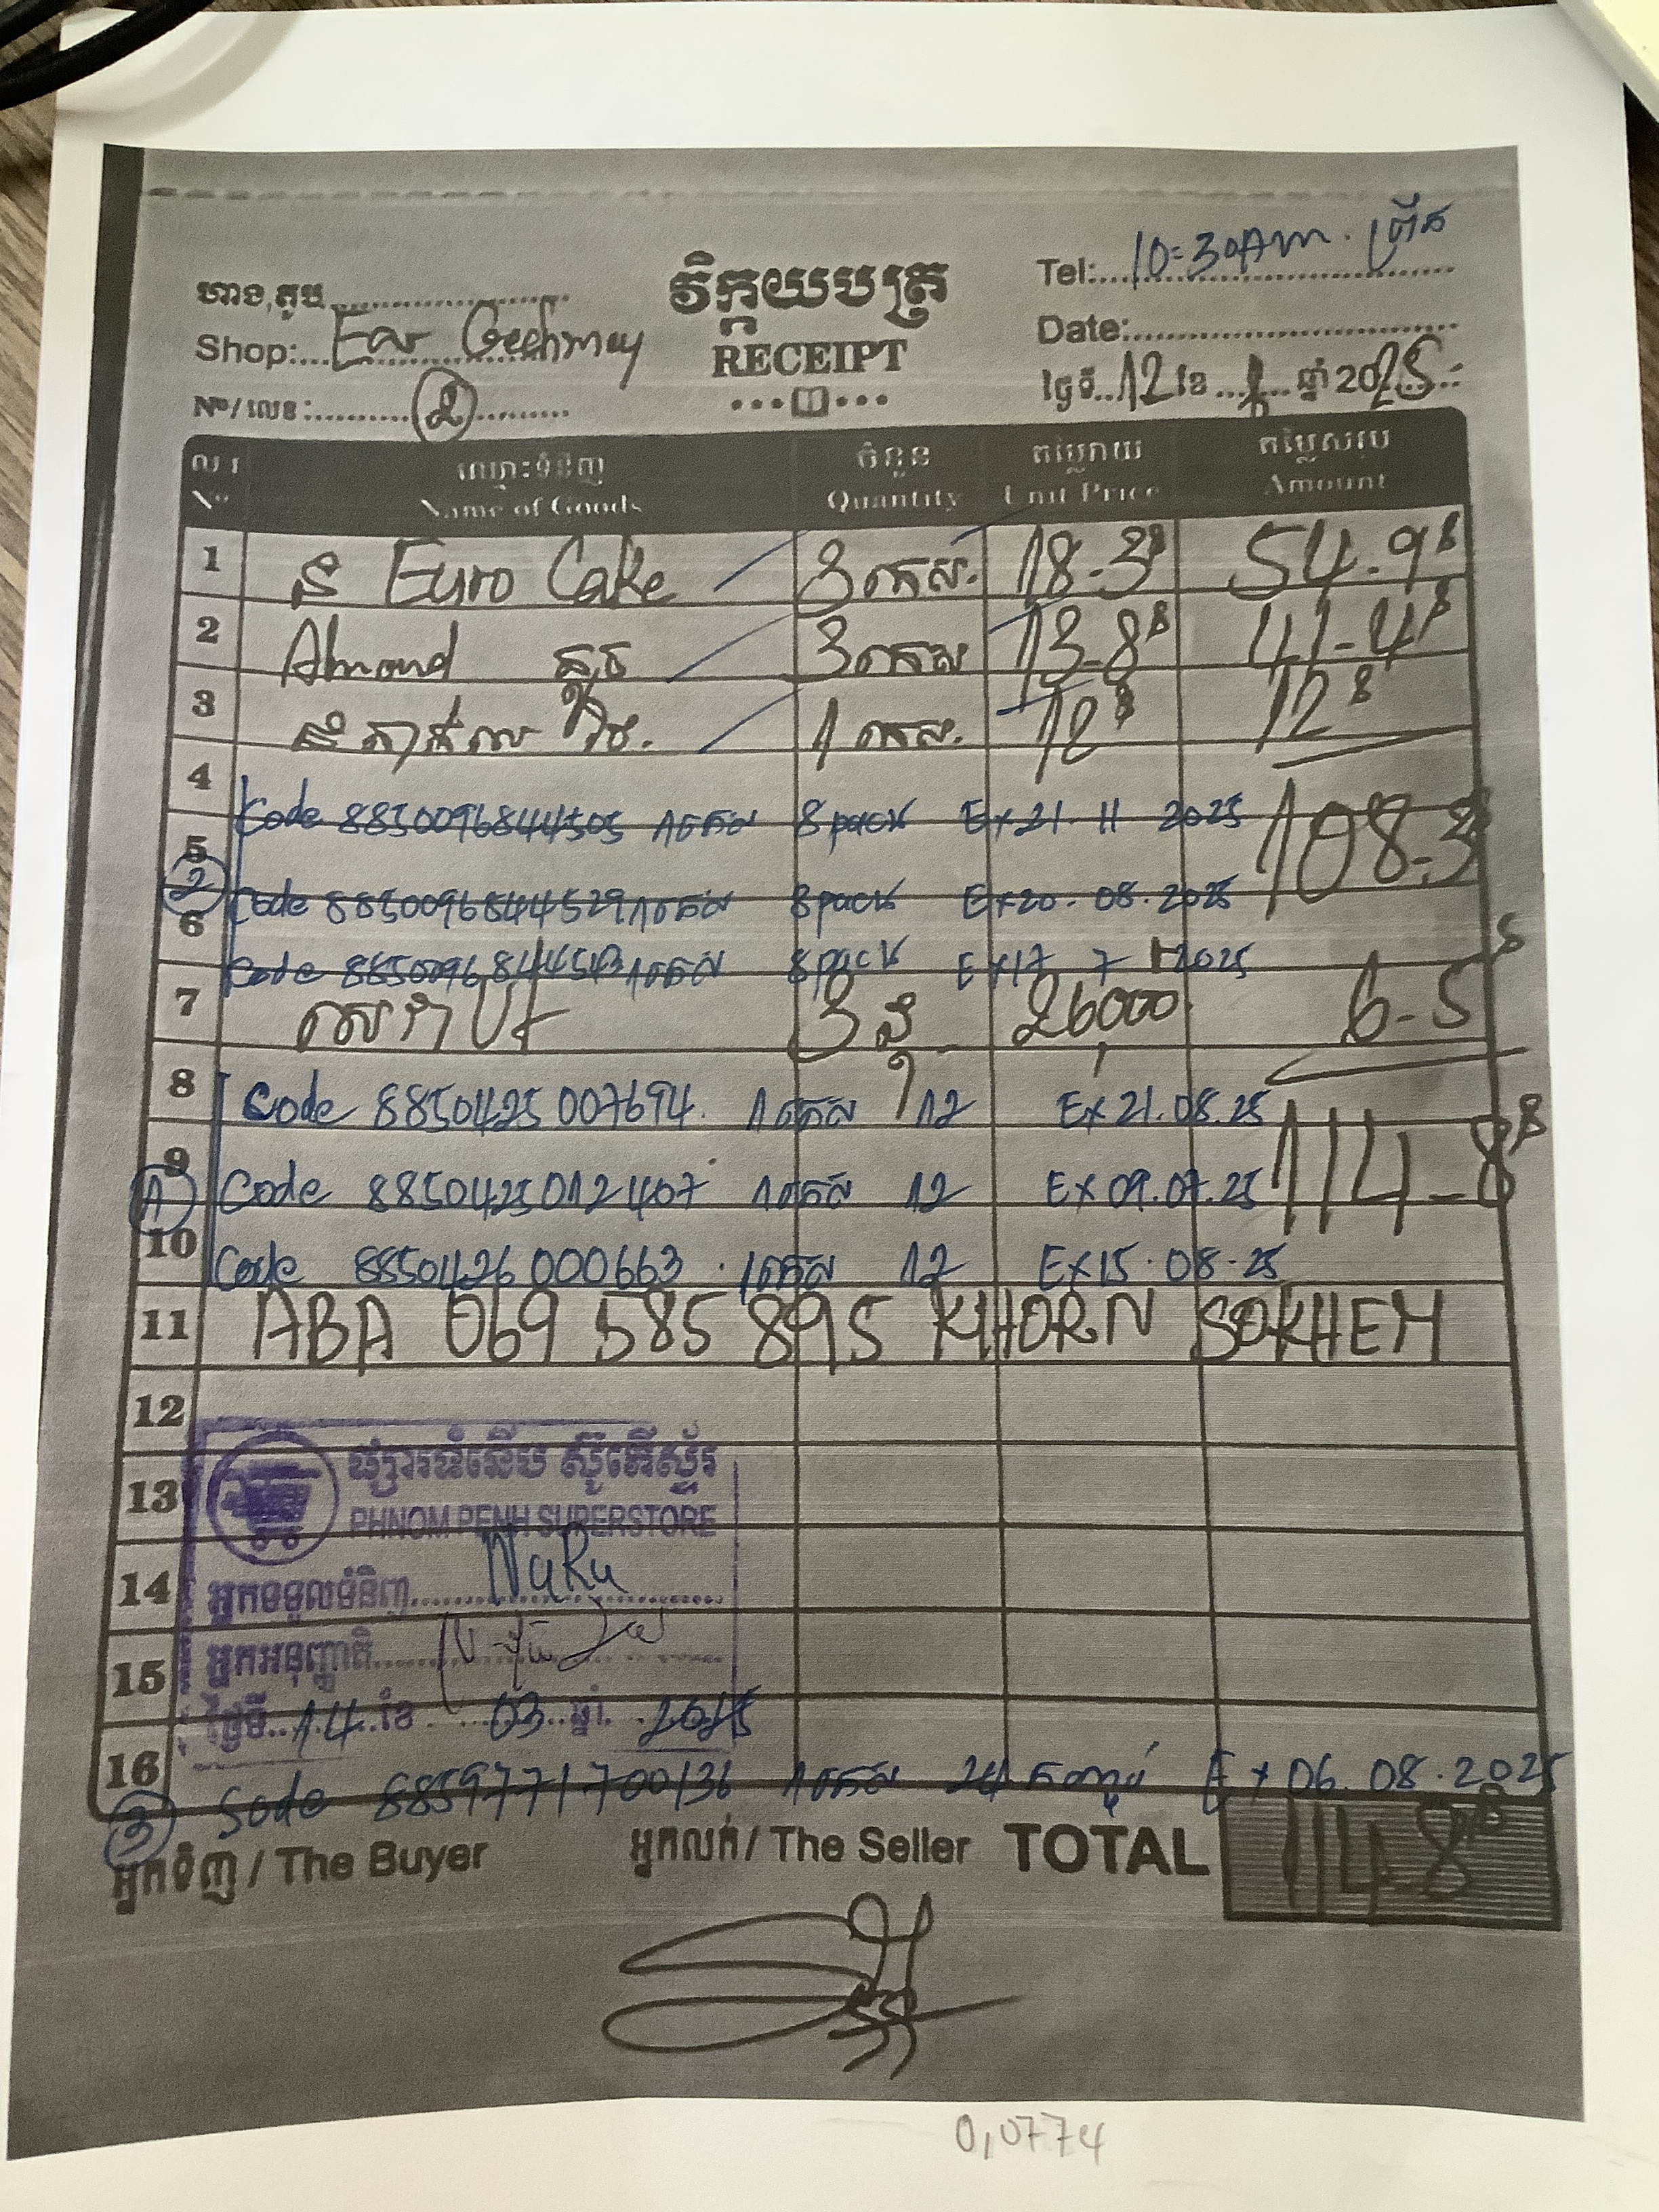 ហាង,តូប
វិក្កយបត្រ
Tel: 10:30Am. ព្រឹក
Shop:
RECEIPT
Date:
Nº/លេខ: 2
ថ្ងៃទី 12 ខែ ឆ្នាំ 2025
ល.រ ឈ្មោះទំនិញ ចំនួន តម្លៃរាយ តម្លៃសរុប
Nº Name of Goods Quantity Unit Price Amount
1 នំ Euro Cake 3 កេស. 18-3$ 54-9$
2 Almond តូច 3 កេស 13-8$ 41-4$
3 នំ 1 កេស. 12$ 12$
4
Code 8850096844505 1កេស 8pack Ex21.11 2025
108-3$
5
2 Code 8850096844529 1កេស 8pack Ex20.08.2025
6
Code 8850096844543 1កេស 8pack Ex17 7 2025
7 3 26000 6-5$
8 Code 8850425007694. 1កេស 12 Ex21.08.25
114-8$
9
1 Code 8850425012407 1កេស 12 Ex09.07.25
10 Code 8850426000663. 1កេស 12 Ex15.08.25
11 ABA 069 585 895 KHORN SOKHEM
12
ផ្សារទំនើប ស៊ូភើស្ទ័រ
13 PHNOM PENH SUPERSTORE
14 អ្នកទទួលទំនិញ NuRu
15 អ្នកអនុញ្ញាតិ
ថ្ងៃទី 14 ខែ 03 ឆ្នាំ 2025
16
3 Sode 8859771700136 1កេស 24 កញ្ចប់ Ex 06.08.2025
អ្នកទិញ / The Buyer អ្នកលក់ / The Seller TOTAL 114-8$
0,0774